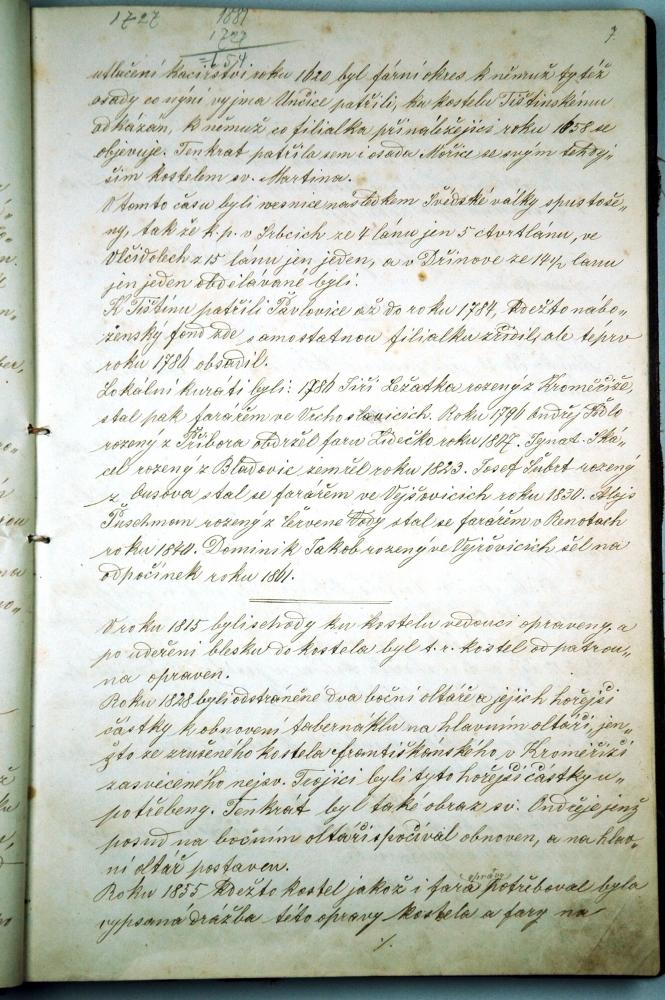 1727 1881
1727
154
7.
utlačení kacířství roku 1620 byl fární okres k němuž ty též
osady co nýní vyjma Unčice patřili, ku kostelu Tištínskému
odkázán, k němuž co filialka přináležející roku 1658 se
objevuje. Tenkrat patřila sem i osada Mořice se svým tehdej„
ším kostelem sv. Martina.
V tomto času byli wesnice následkem Švédské války spustoše„
ny, tak že k. p. v Srbcích ze 4 lánu jen 5 čtvrtlánu, ve
Vlčidolech z 15 lanu jen jeden, a v Dřínove ze 14 1/2 lanu
jen jeden obdělávané byli.
K Tištínu patřili Pavlovice až do roku 1784, kdežto nábo„
ženský fond zde samostatnou filialku zřídil, ale téprv
roku 1786 obsadil.
Lokální kuráti byli: 1786 Jiří Ležatka rozený z Kroměříže,
stal pak farařém ve Vrchoslavicích. Roku 1796 Andrěj
rozený z Příbora obdržěl faru Lidečko roku 1807. Ignat. Ská„
cel rozený z Bladovic zemřěl roku 1823. Josef Šubrt rozený
z Ousova stal se farářěm ve Vyšovicích roku 1830. Alojs
Puschman rozený z Červene Vody stal se farářěm v Renotach
roku 1840. Dominik Jakob rozený ve Vyšovicích šěl na
odpočínek roku 1861.
V roku 1815 byli schody ku kostelu vedoucí opraveny, a
po udeření blesku do kostela byl t. r. kostel od patrou„
na opraven.
Roku 1828 byli odstráněné dva boční oltáře a jejich hořejší
částky k obnovení tabernáklu na hlavním oltáři, jen„
žto ze zrušeného kostela františkanského v Kroměříži
zasvěceného nejsv. Trojici byli tyto hořejší částky u„
potřebeny. Tenkrát byl také obraz sv. Ondřeje jenž
posud na bočním oltáři spočíval obnoven, a na hlav„
ní oltář postaven.
Roku 1855 kdežto kostel jakož i fara opravy potřeboval byla
vypsana dražba této opravy kostela a fary na
./.